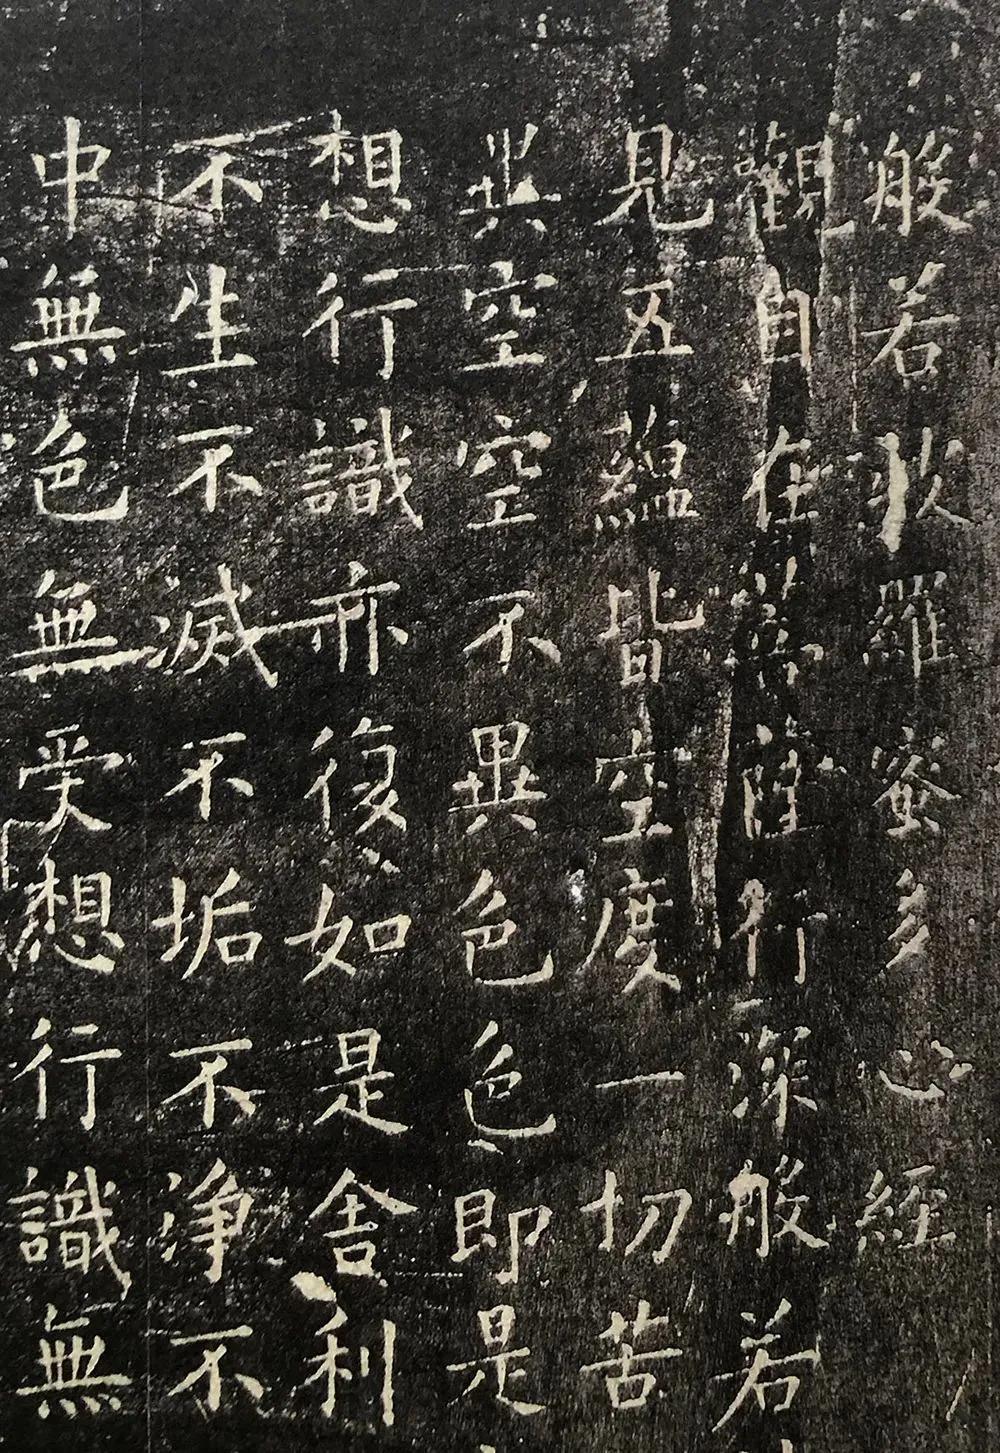 般若波羅蜜多心經
觀自在菩薩行深般若
見五蘊皆空度一切苦
異空空不異色色即是
想行識亦復如是舍利
不生不滅不垢不淨不
中無色無受想行識無